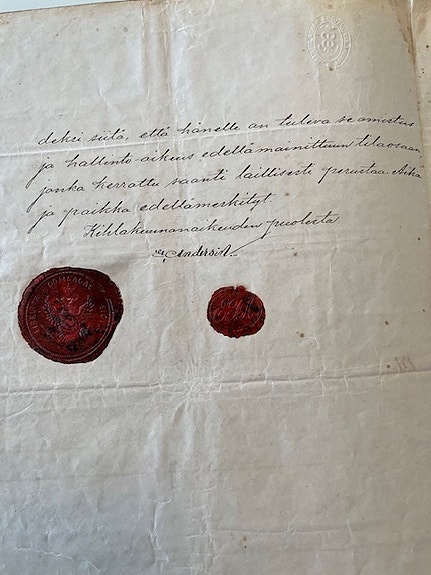 deksi siitä, että hänelle on tuleva se omistus
ja hallinto-oikeus edellämainittuun tilaosaan
jonka kerrattu saanti laillisesti perustaa. Aika
ja paikka edellämerkityt.
Kihlakunnanoikeuden puolesta.
Andersin